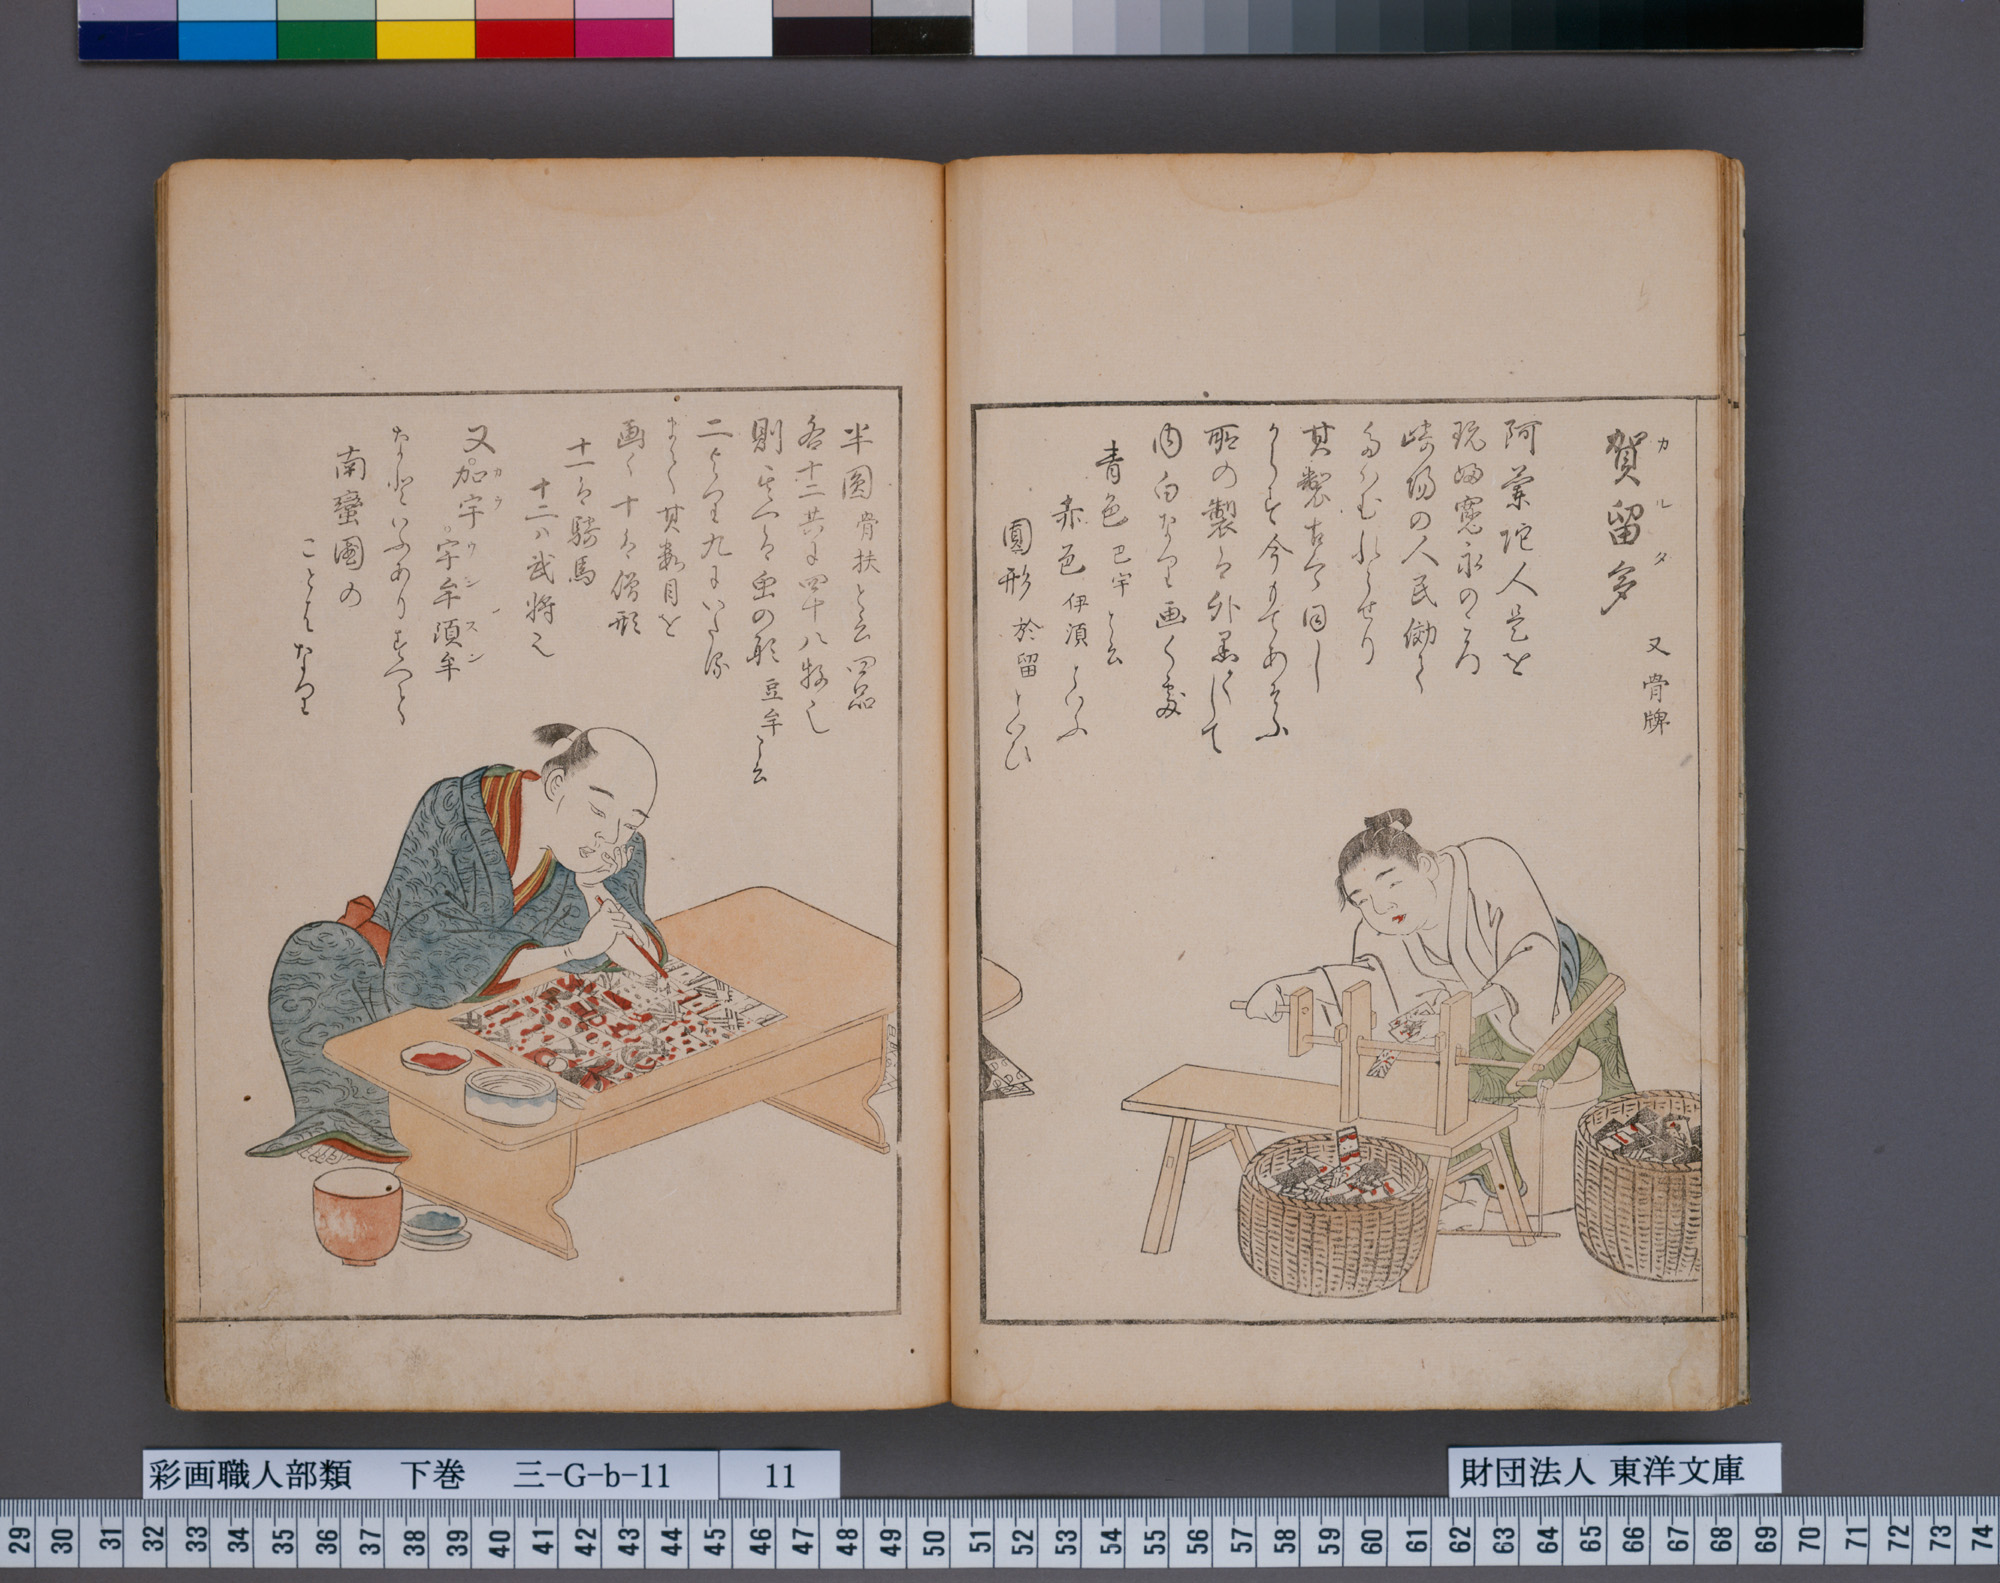 賀留多
カルタ
又骨牌
阿蘭陀人是を
玩ふ寛永のころ
崎陽の人民倣て
たはむれとせり
其製古今同し
からす今もてあそふ
所の製は外黒くして
内白なり画く處
青色 巴宇と云
赤色 伊須といふ
圓形 於留といひ
半圓 骨扶と云四品
各十二共に四十八牧也
則其一は虫の形 豆牟と云
二より九にいたる
まて其数目を
画く十は僧形
十一は騎馬
十二ハ武将也
又加宇宇牟須牟
カウウンスン
なといふありすへて
南蠻國の
ことはなり
彩画職人部類 下巻 三-G-b-11
11
財団法人 東洋文庫
29 30 31 32 33 34 35 36 37 38 39 40 41 42 43 44 45 46 47 48 49 50 51 52 53 54 55 56 57 58 59 60 61 62 63 64 65 66 67 68 69 70 71 72 73 74